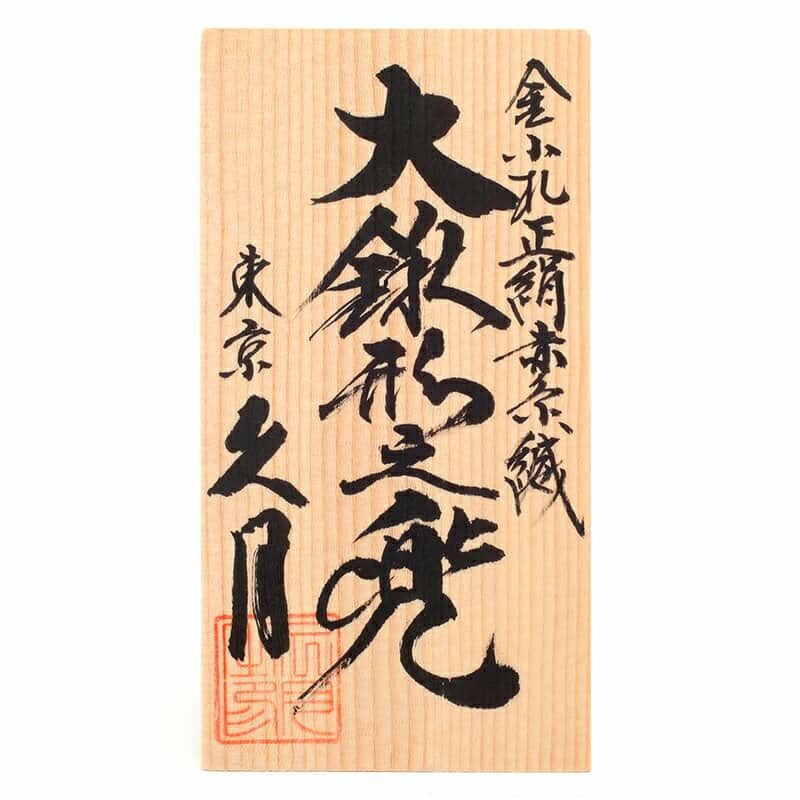 金小札正絹赤糸縅
大鍬形之兜
東京久月